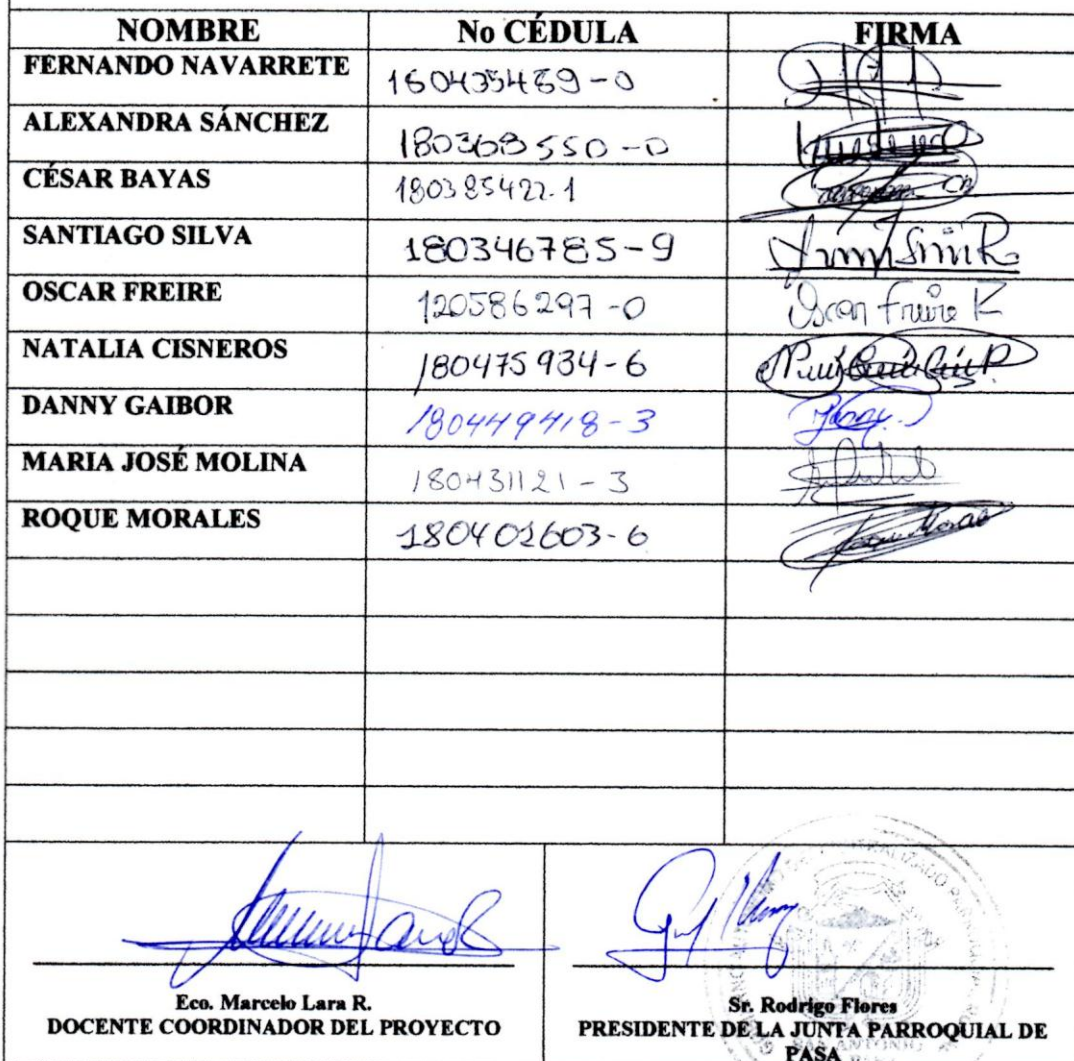 NOMBRE No CÉDULA FIRMA
FERNANDO NAVARRETE 160435489-0
ALEXANDRA SÁNCHEZ 180368550-0
CÉSAR BAYAS 180385422-1
SANTIAGO SILVA 180346785-9
OSCAR FREIRE 120586297-0 Oscar Freire
NATALIA CISNEROS 180475934-6
DANNY GAIBOR 180449418-3
MARIA JOSÉ MOLINA 180431121-3
ROQUE MORALES 180401603-6
Eco. Marcelo Lara R.
DOCENTE COORDINADOR DEL PROYECTO
Sr. Rodrigo Flores
PRESIDENTE DE LA JUNTA PARROQUIAL DE
PASA